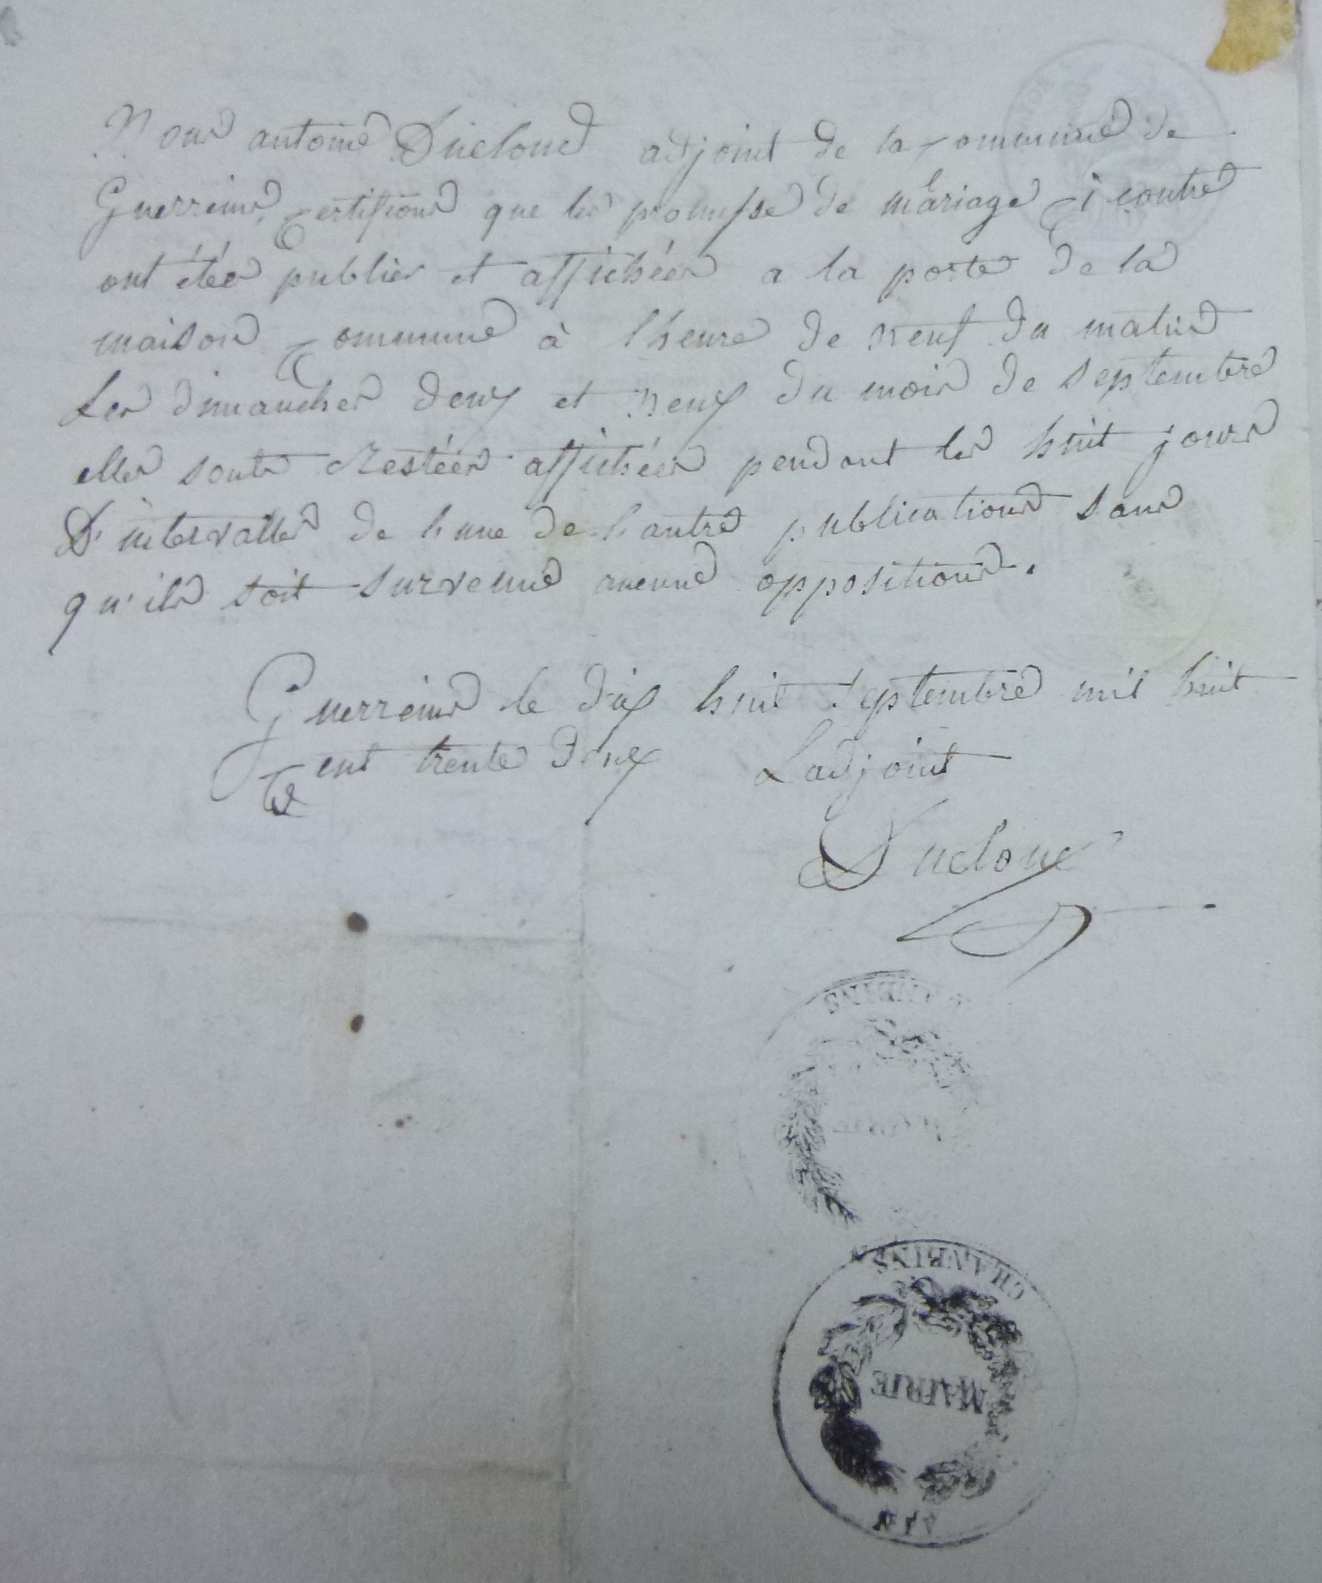 Nous antoine Duclous adjoint de la Commune de
Guerreins Certifions que les promesse de mariage Ci contre
ont étées publies et affichées a la porte de la
maison Commune à l'heure de neuf du matin
Les dimanches deux et neuf du mois de septembre
elles sonts restées affichées pendant les huit jours
D'intervalles de l'une de l'autre publications sans
qu'ils soit survenue aucune oppositions.
Guerreins le dix huit septembre mil huit
Cent trente deux Ladjoint
Duclous
MAIRIE
CHANEINS
MAIRIE
AIN